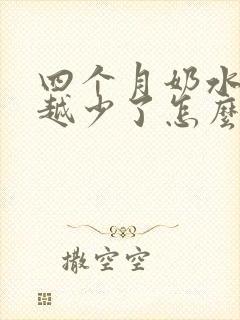 四个月奶水
越少了怎麽
撒空空